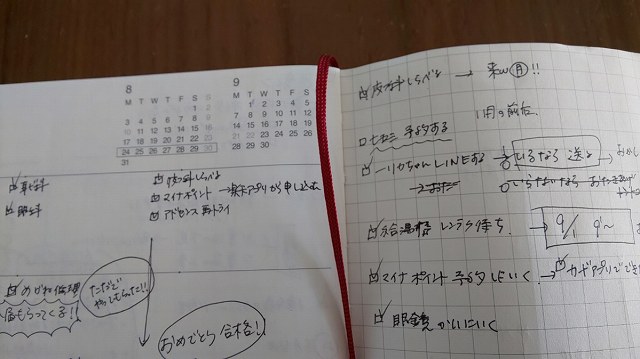 8
M T W T F S S
1 2
3 4 5 6 7 8 9
10 11 12 13 14 15 16
17 18 19 20 21 22 23
24 25 26 27 28 29 30
31
9
M T W T F S S
1 2 3 4 5 6
7 8 9 10 11 12 13
14 15 16 17 18 19 20
21 22 23 24 25 26 27
28 29 30
耳鼻科
眼科
皮フ科しらべる
マイナポイント → 楽天アプリから申し込む
アドセンス再トライ
めがね修理
届もらってくる!!
ただで
やってもらった!!
おめでとう 合格!!
皮フ科しらべる → 来週月!!
1月の前右
七五三 予約する
リカちゃんLINEする
いるなら 送る
いらないなら
給湯器 レンラク待ち
9/1 9~
マイナポイント 予約していく
カードアプリでできる
眼鏡かいにいく